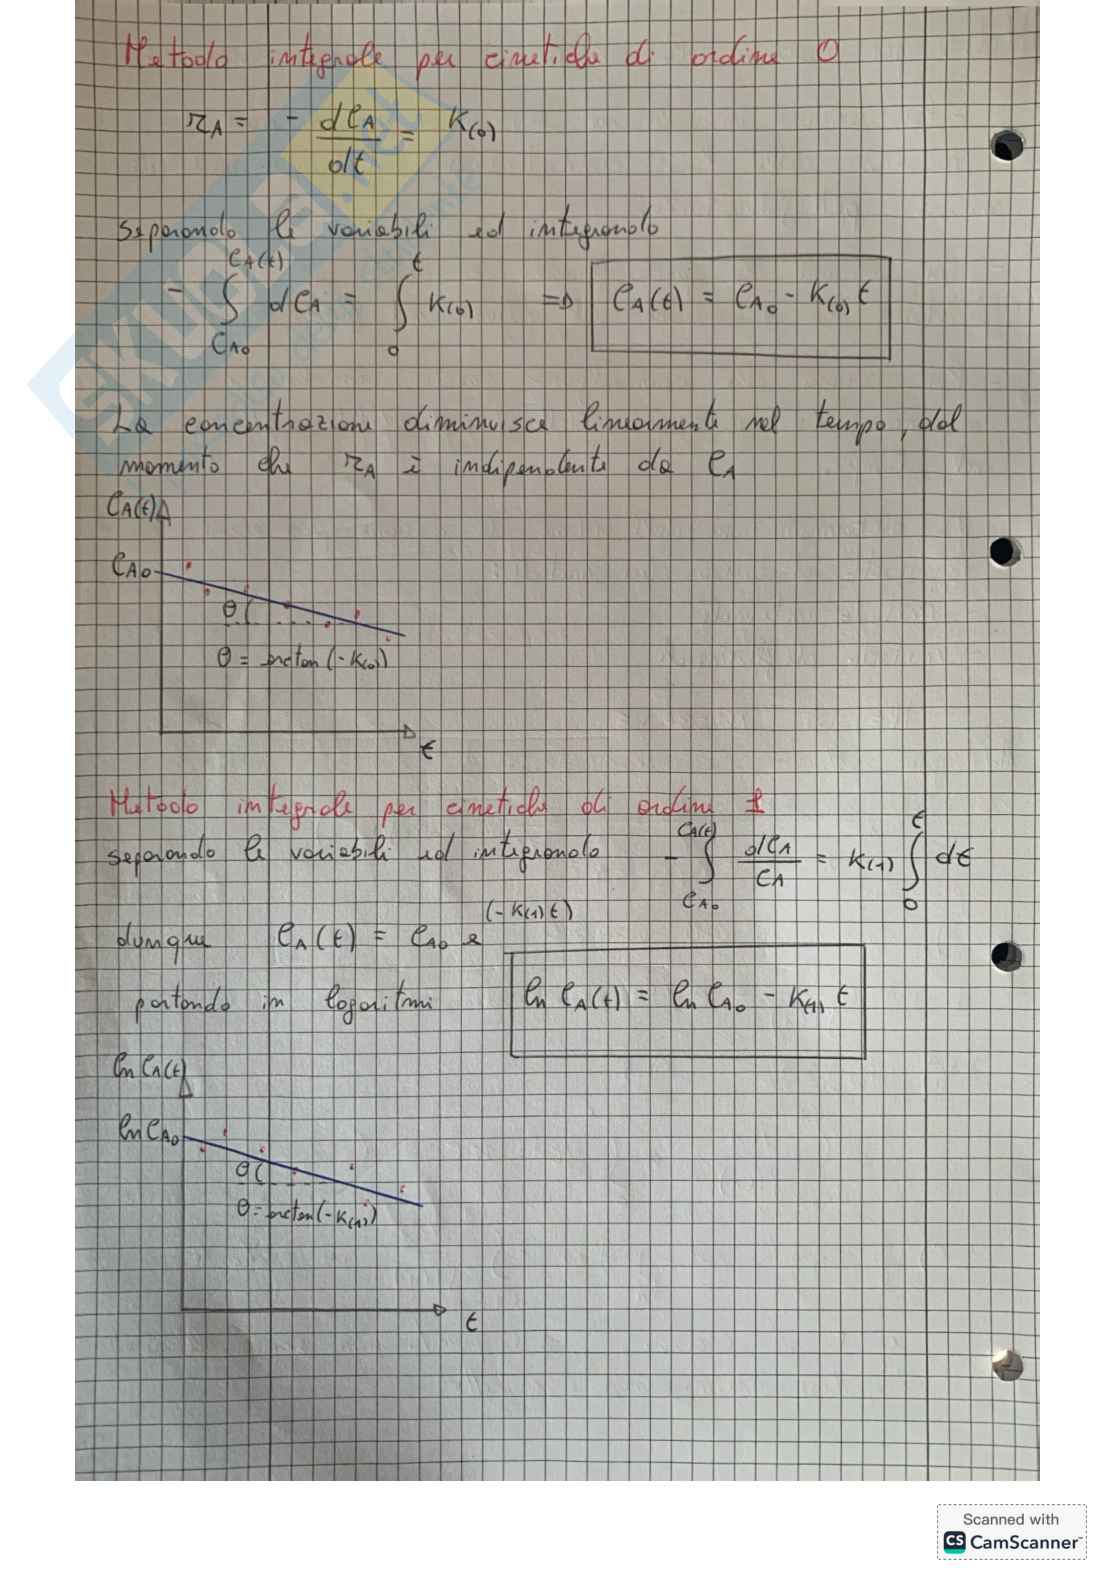 Metodo integrale per cinetiche di ordine 0
r_A = - dC_A/dt = K(0)
separando le variabili ed integrando
- ∫_{C_A0}^{C_A(t)} dC_A = ∫_0^t K(0) => C_A(t) = C_A0 - K(0) t
La concentrazione diminuisce linearmente nel tempo, dal
momento che r_A è indipendente da C_A
C_A(t)
C_A0
θ
θ = arctan (-K(0))
t
Metodo integrale per cinetiche di ordine 1
separando le variabili ed integrando - ∫_{C_A0}^{C_A(t)} dC_A/C_A = K(1) ∫_0^t dt
dunque C_A(t) = C_A0 e^(-K(1) t)
portando in logaritmi ln C_A(t) = ln C_A0 - K(1) t
ln C_A(t)
ln C_A0
θ
θ = arctan (-K(1))
t
SKUOLA.net
Scanned with
CS CamScanner